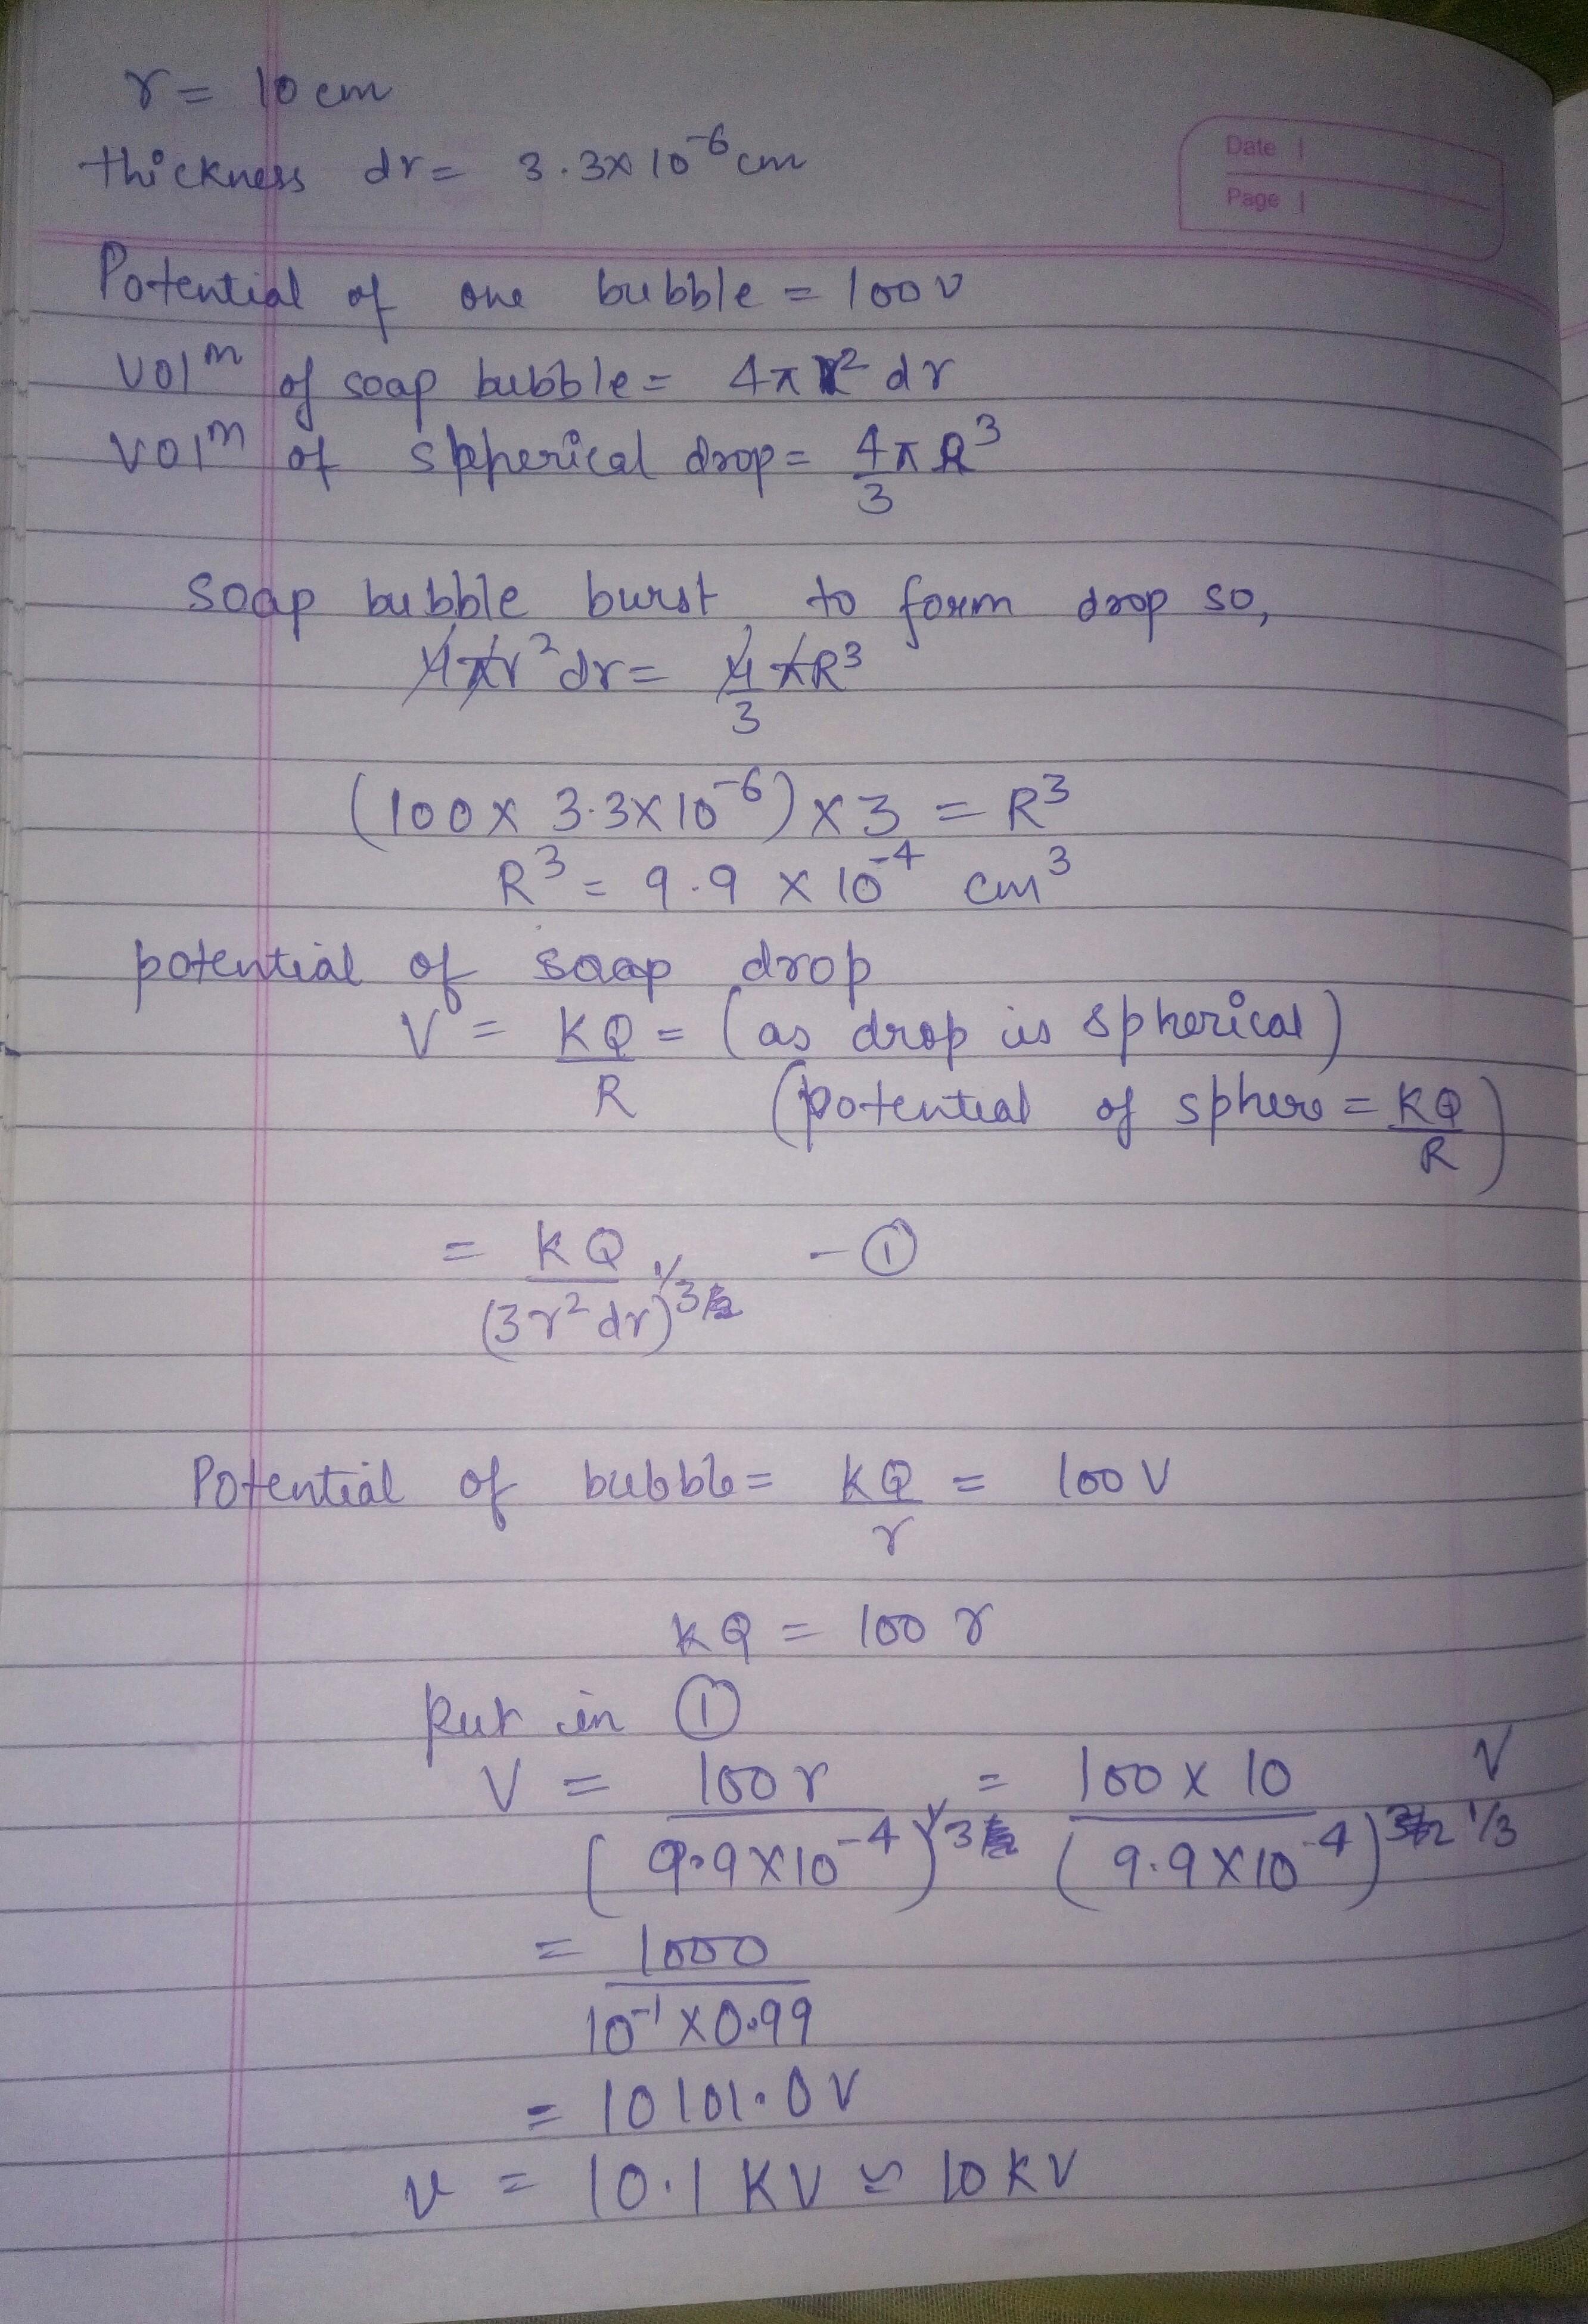 r = 10 cm
thickness dr = 3.3x 10^-6 cm
Date
Page
Potential of one bubble = 100 v
vol^m of soap bubble = 4π r^2 dr
vol^m of spherical drop = 4/3 π R^3
soap bubble burst to form drop so,
4πr^2 dr = 4/3 πR^3
(100 x 3.3x10^-6) x 3 = R^3
R^3 = 9.9 x 10^-4 cm^3
potential of soap drop
V = KQ/R = (as drop is spherical)
(potential of sphere = KQ/R)
= KQ/(3r^2 dr)^1/3 - ①
Potential of bubble = KQ/r = 100 V
KQ = 100 r
Put in ①
V = 100 r/(9.9x10^-4)^1/3 = 100 x 10/(9.9x10^-4)^1/3 V
= 1000/10^-1 x 0.99
= 10101.0 V
v = 10.1 KV ≃ 10 KV